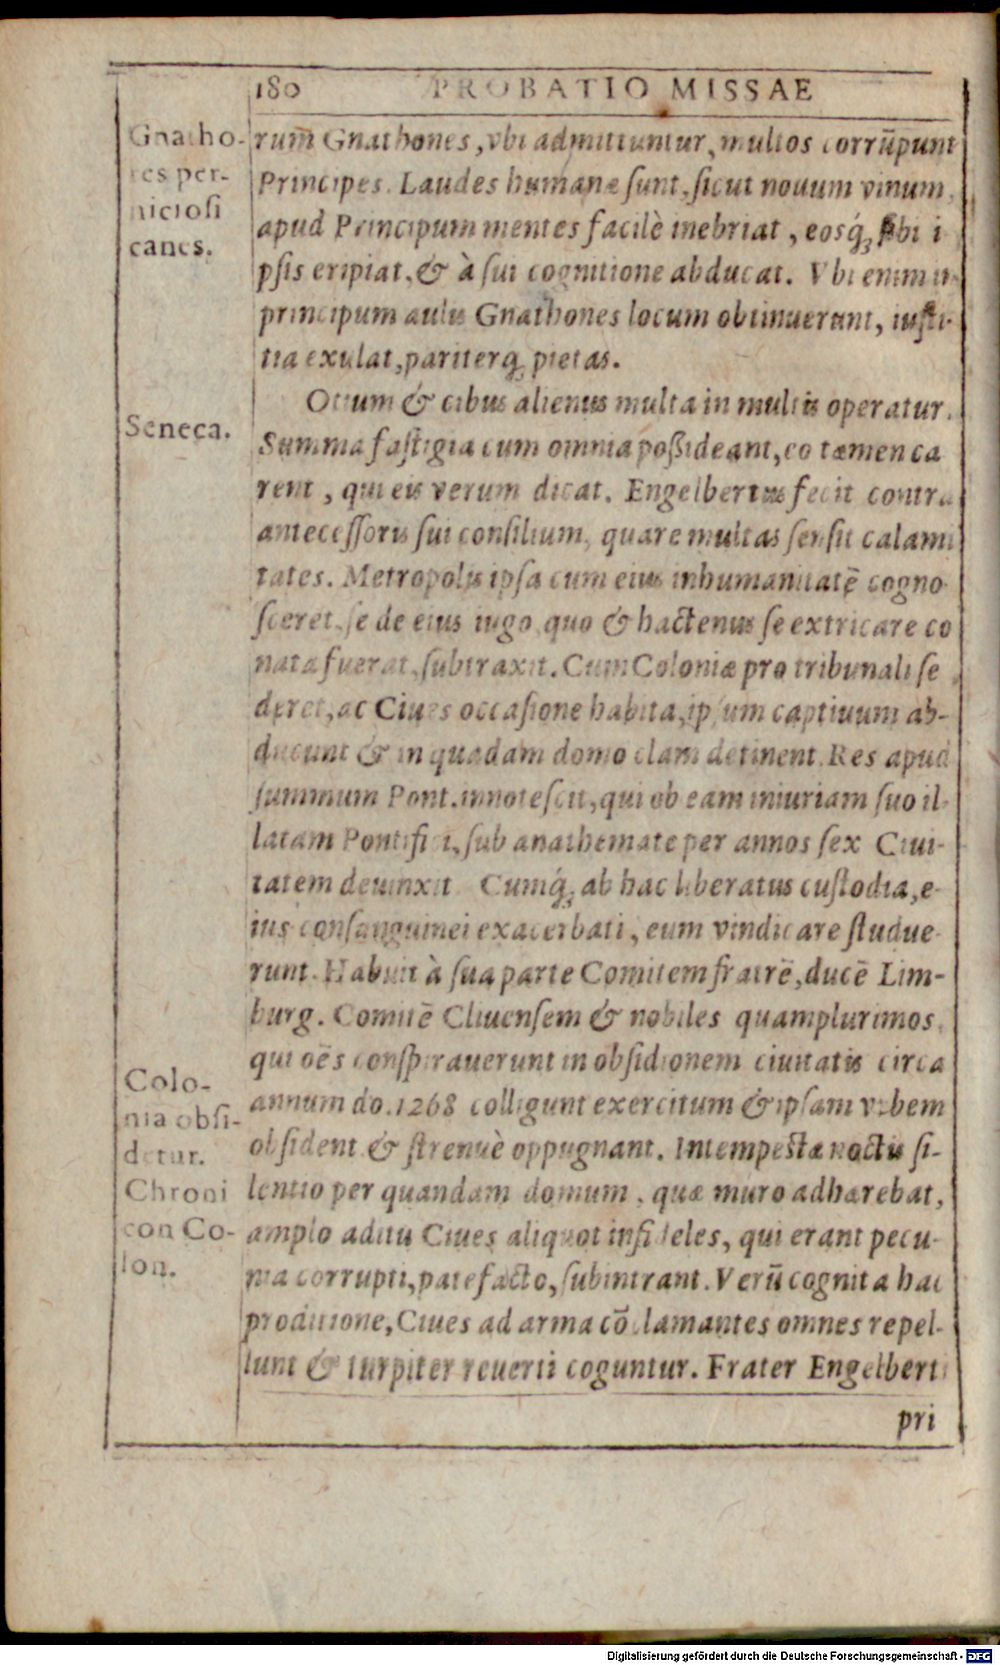 180 PROBATIO MISSAE
Gnatho-
res per-
niciosi
canes.
rum̃ Gnathones, vbi admittuntur, multos corrũpunt
Principes. Laudes humanæ sunt, sicut nouum vinum,
apud Principum mentes facilè inebriat, eosq́ȝ sibi i
psis eripiat, & à sui cognitione abducat. Vbi enim in
principum aulis Gnathones locum obtinuerunt, iusti-
tia exulat, pariterq́ȝ pietas.
Seneca.
Otium & cibus alienus multa in multis operatur.
Summa fastigia cum omnia possideant, eo tamen ca
rent, qui eis verum dicat. Engelbertus fecit contra
antecessoris sui consilium, quare multas sensit calami
tates. Metropolis ipsa cum eius inhumanitatẽ cogno
sceret, se de eius iugo, quo & hactenus se extricare co
nata fuerat, subtraxit. Cum Coloniæ pro tribunali se
deret, ac Ciues occasione habita, ipsum captiuum ab-
ducunt & in quadam domo clam detinent. Res apud
summum Pont. innotescit, qui ob eam iniuriam suo il-
latam Pontifici, sub anathemate per annos sex Ciui-
tatem deuinxit. Cumq́ȝ ab hac liberatus custodia, e-
ius consanguinei exacerbati, eum vindicare studue-
runt. Habuit à sua parte Comitem fratrẽ, ducẽ Lim-
burg. Comitẽ Cliuensem & nobiles quamplurimos,
qui oẽs conspirauerunt in obsidionem ciuitatis circa
Colo-
nia obsi-
detur.
Chroni
con Co-
lon.
annum do. 1268 colligunt exercitum & ipsam vrbem
obsident & strenuè oppugnant. Intempestæ noctis si-
lentio per quandam domum, quæ muro adhærebat,
amplo aditu Ciues aliquot infideles, qui erant pecu-
nia corrupti, patefacto, subintrant. Verũ cognita hac
proditione, Ciues ad arma cõclamantes omnes repel-
lunt & turpiter reuerti coguntur. Frater Engelberti
pri
Digitalisierung gefördert durch die Deutsche Forschungsgemeinschaft - DFG